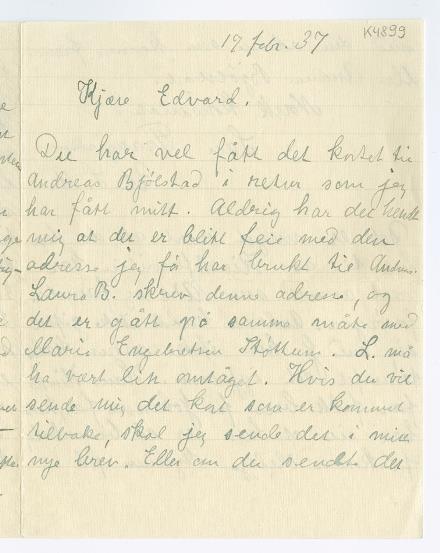 K4899
17 febr. 37
Kjære Edvard.
Du har vel fått det kortet til
Andreas Bjølstad i retur som jeg
har fått mitt. Aldrig har det hendt
mig at det er blitt feil med den
adresse jeg har brukt til
Laura B. skrev denne adresse, og
det er gått på samme måte med
Marie Engebretsen L. må
ha vært litt omtåget. Hvis du vil
sende mig det kort som er kommet
tilbake, skal jeg sende det i mitt
nye brev. Eller om du sendte det